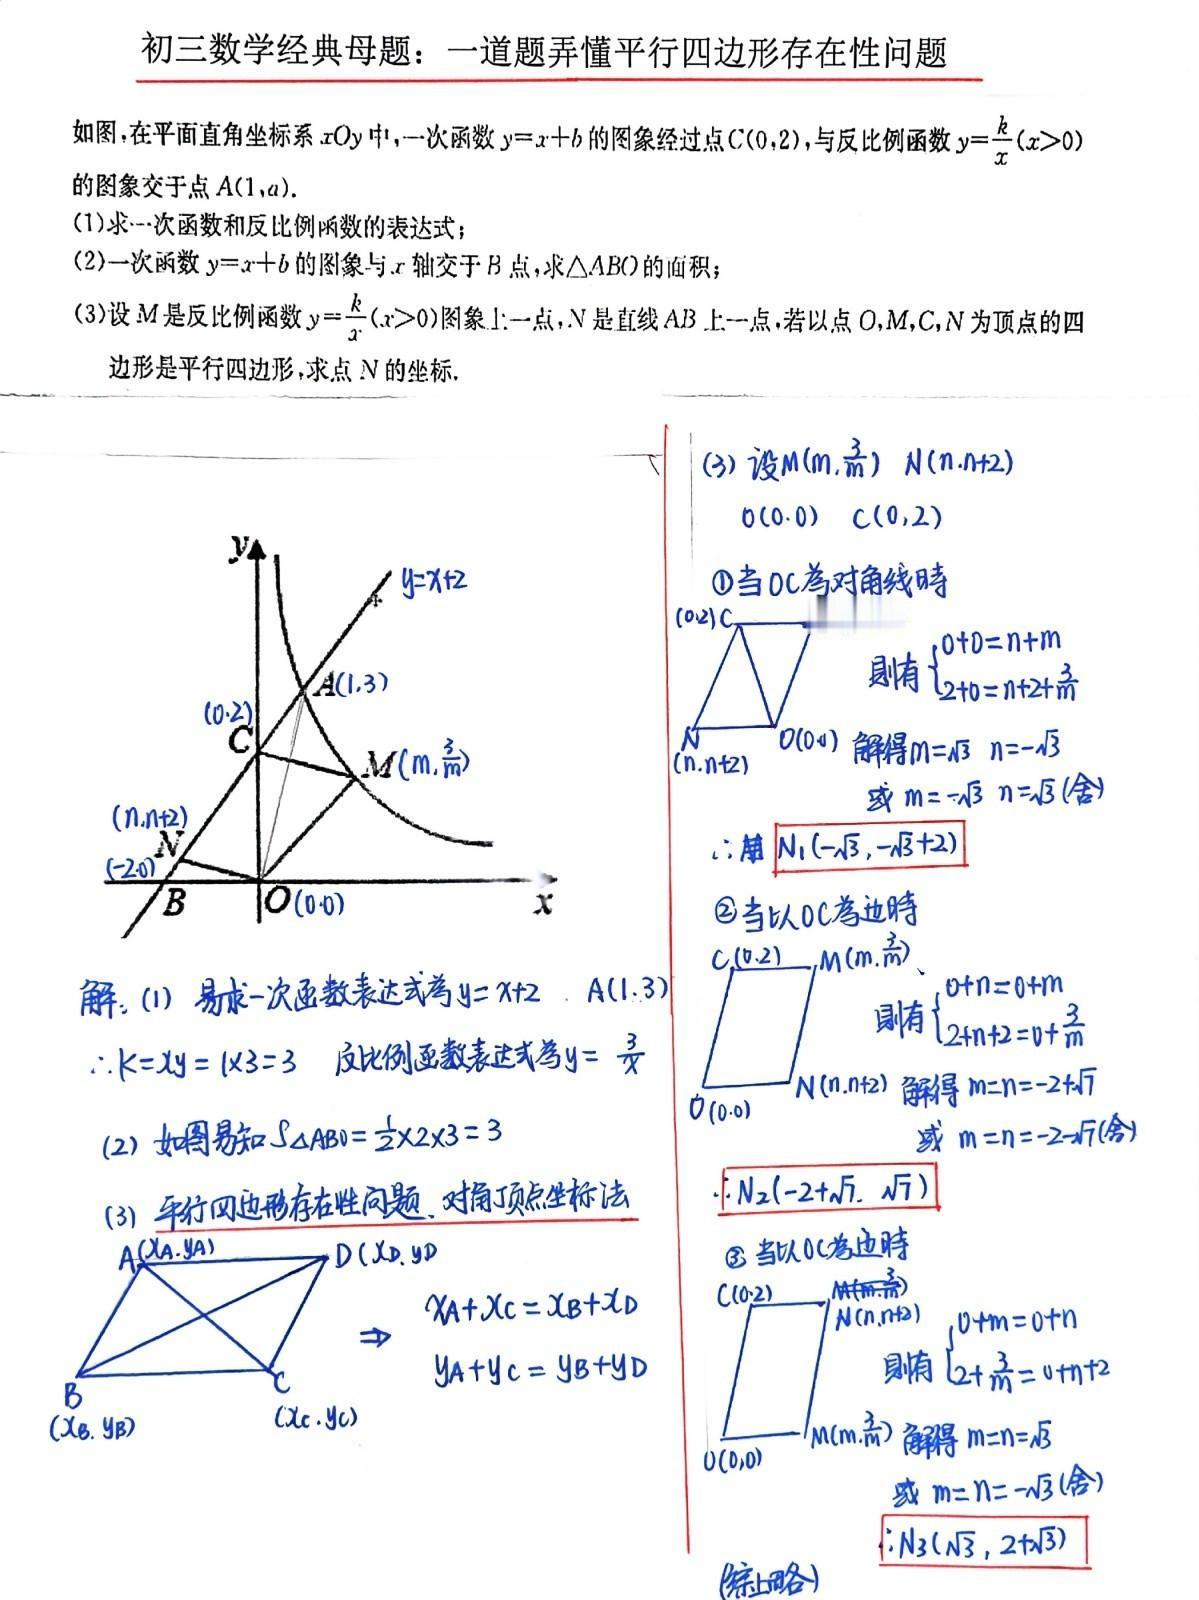 初三数学经典母题：一道题弄懂平行四边形存在性问题
如图,在平面直角坐标系 xOy 中,一次函数 y=x+b 的图象经过点C(0,2),与反比例函数 y=k/x(x>0)
的图象交于点 A(1,a).
(1)求一次函数和反比例函数的表达式;
(2)一次函数 y=x+b 的图象与 x 轴交于 B 点,求△ABO的面积;
(3)设 M 是反比例函数 y=k/x(x>0)图象上一点,N 是直线 AB 上一点,若以点 O,M,C,N 为顶点的四
边形是平行四边形,求点 N 的坐标.
y
y=x+2
A(1.3)
(0.2)
C
M(m.3/m)
(n.n+2)
N
(-2.0)
B
O(0.0)
x
解:(1) 易求一次函数表达式為y=x+2 . A(1.3)
∴K=xy=1×3=3 反比例函数表达式為y=3/x
(2) 如图易知S△ABO=1/2×2×3=3
(3) 平行四边形存在性问题、对角顶点坐标法
A(xA.yA)
D(xD.yD
B
(xB.yB)
C
(xc.yc)
⇒
xA+xC=xB+xD
yA+yC=yB+yD
(3) 设M(m.3/m) N(n.n+2)
O(0.0) C(0,2)
①当OC為对角线時
(0.2)C
N
(n.n+2)
O(0.0)
則有{0+0=n+m
2+0=n+2+3/m
解得m=√3 n=-√3
或 m=-√3 n=√3(舍)
∴ N1(-√3,-√3+2)
②当以OC為边時
C(0.2)
M(m.3/m)
O(0.0)
N(n.n+2)
則有{0+n=0+m
2+n+2=0+3/m
解得 m=n=-2+√7
或 m=n=-2-√7(舍)
∴N2(-2+√7. √7)
③当以OC為边時
C(0.2)
N(n.n+2)
O(0,0)
M(m.3/m)
則有{0+m=0+n
2+3/m=0+n+2
解得 m=n=√3
或 m=n=-√3(舍)
∴N3(√3, 2+√3)
(综上略)